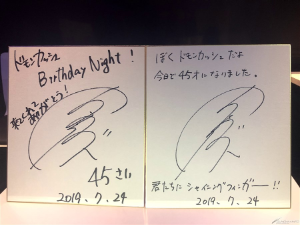 ドモンカッシュ
Birthday Night!
来てくれて
ありがとう!
45さい
2019.7.24
ぼくドモンカッシュだよ
今日で45才になりました。
君たちにシャイニングフィンガー!!
2019.7.24